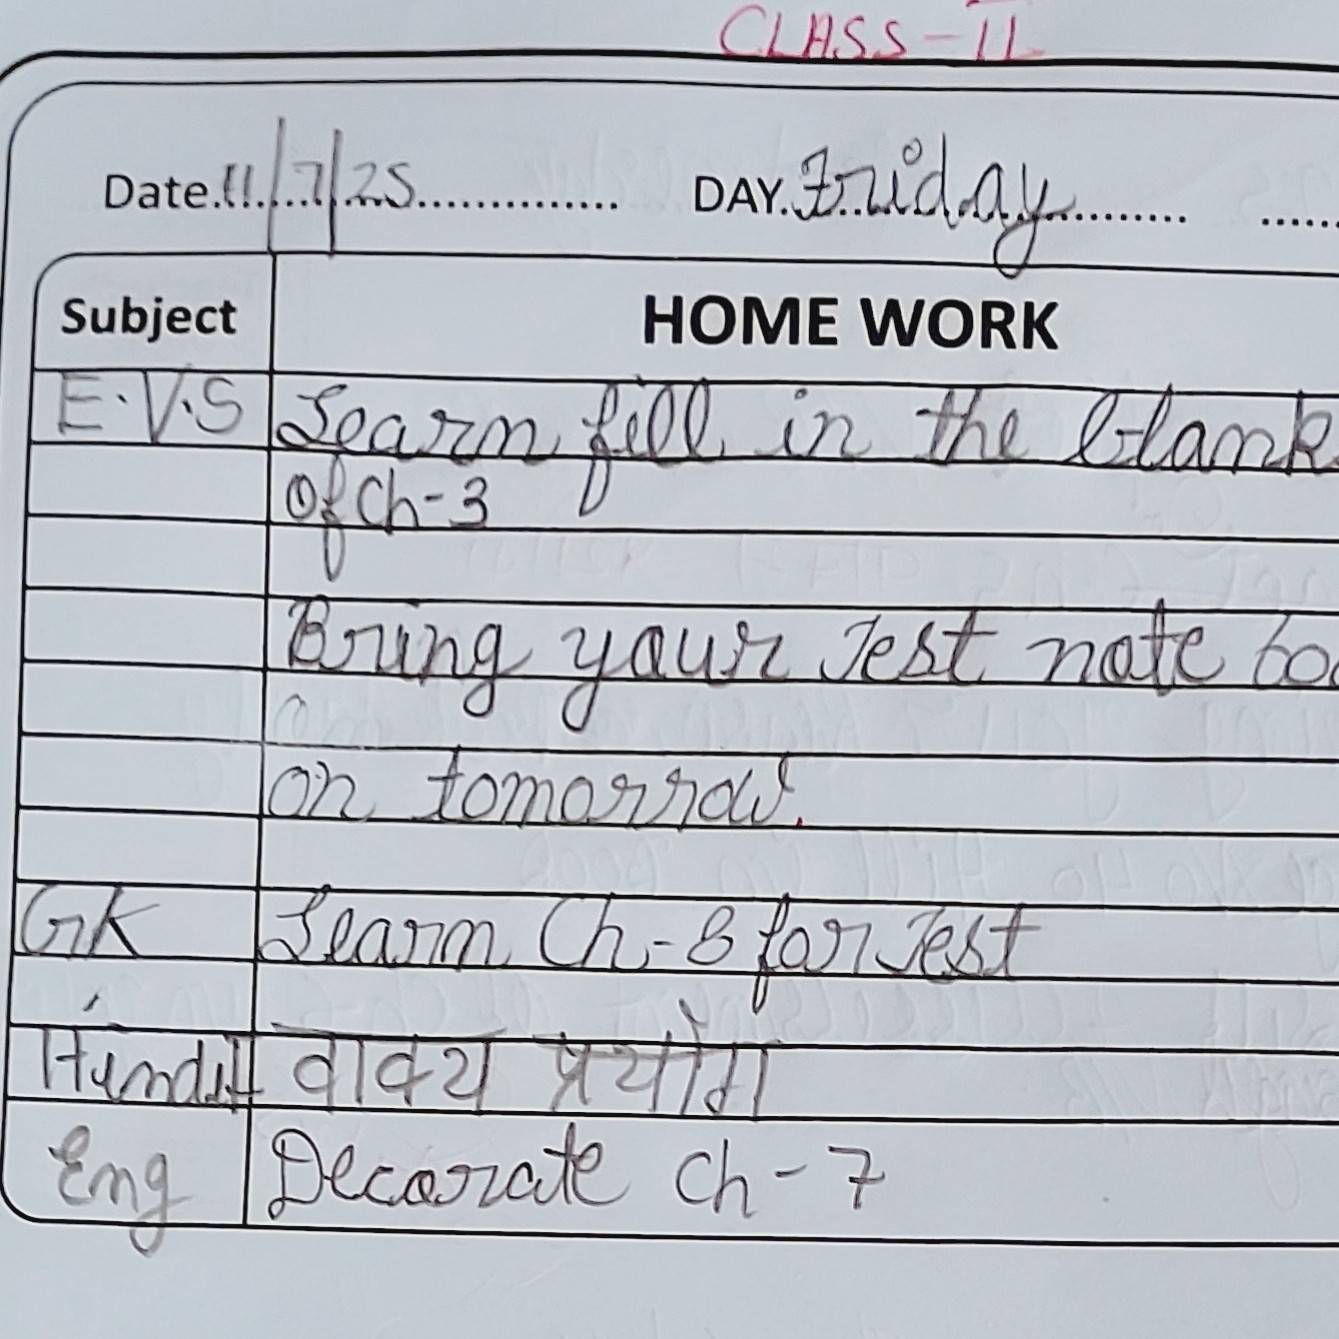 CLASS-II
Date. 11/7/25 DAY. Friday
Subject HOME WORK
E.V.S Learn fill in the blank
Of Ch-3
Bring your Test note bo
on tomorrow.
GK Learn Ch-8 for Test
Hindi वाक्य प्रयोग
Eng Decorate Ch-7